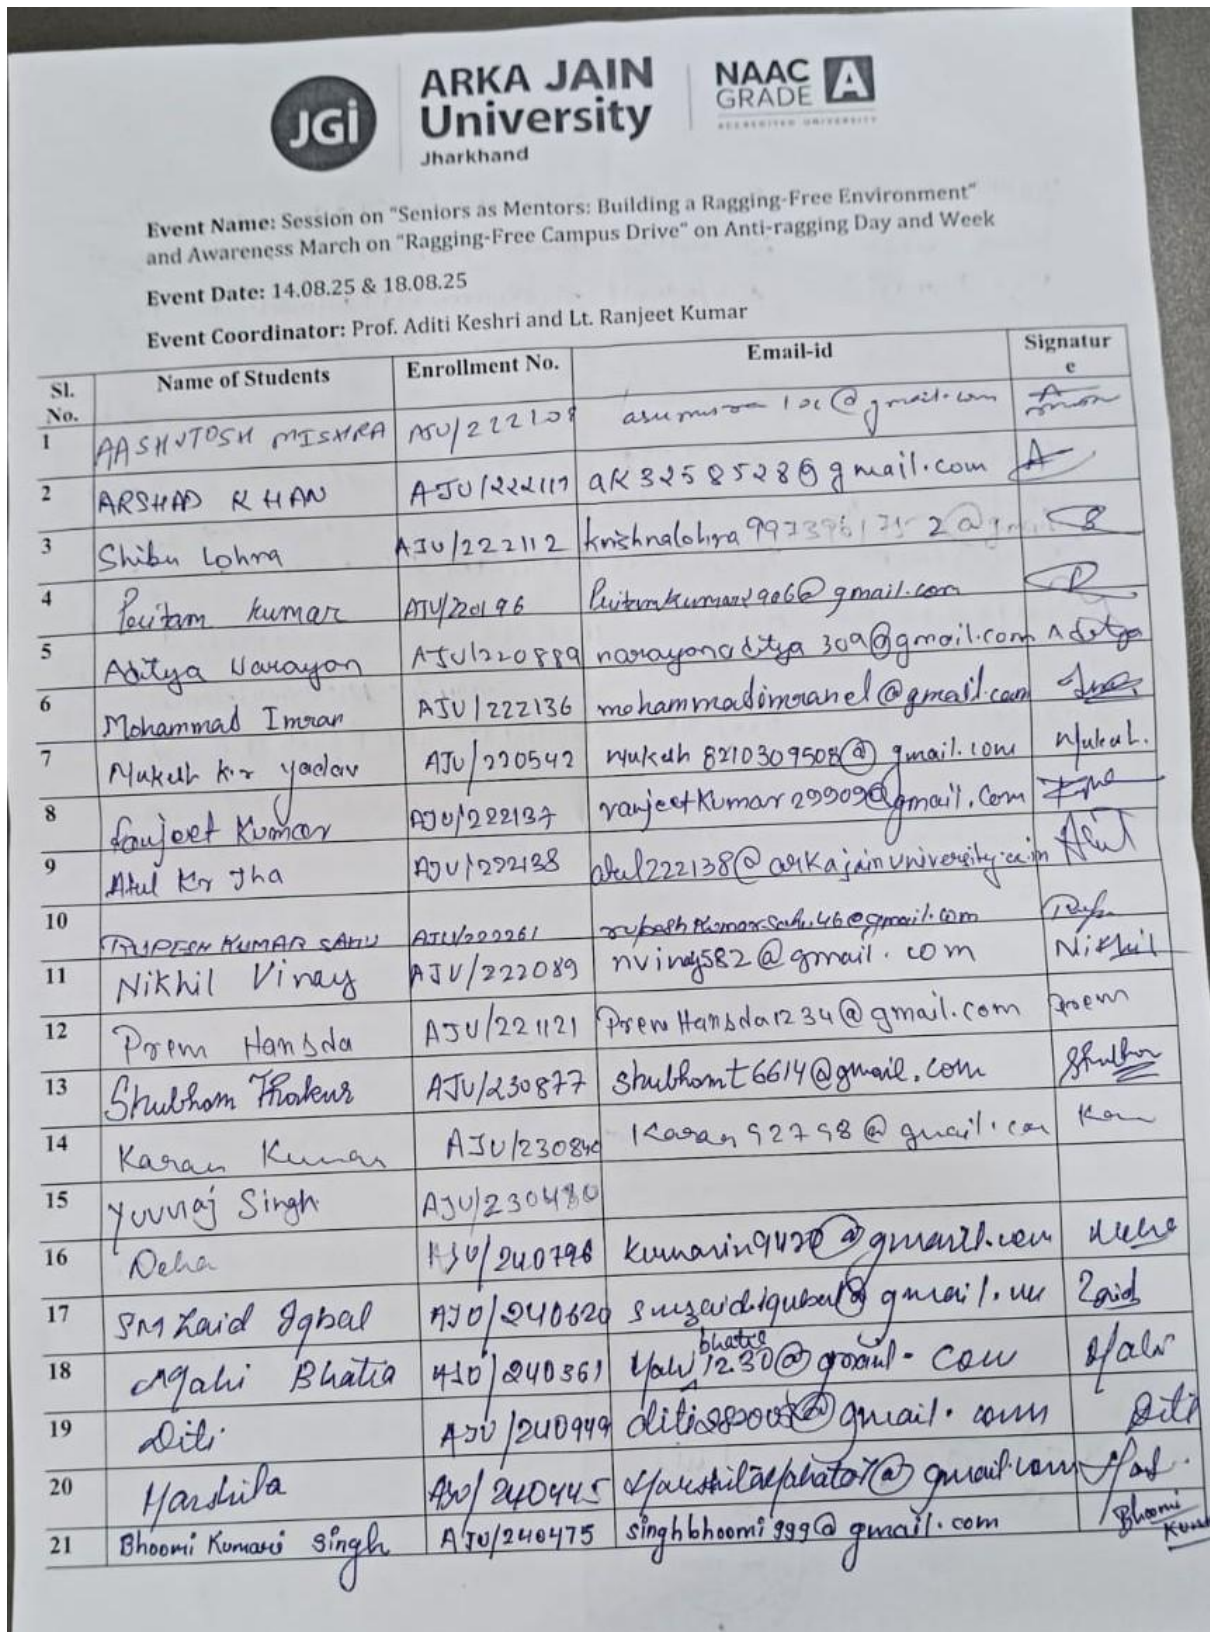 JGI
ARKA JAIN
University
Jharkhand
NAAC
GRADE A
ACCREDITED UNIVERSITY
Event Name: Session on "Seniors as Mentors: Building a Ragging-Free Environment"
and Awareness March on "Ragging-Free Campus Drive" on Anti-ragging Day and Week
Event Date: 14.08.25 & 18.08.25
Event Coordinator: Prof. Aditi Keshri and Lt. Ranjeet Kumar
Sl. No. Name of Students Enrollment No. Email-id Signature
1 AASHUTOSH MISHRA
2 ARSHAD KHAN AJU/222117 ak3258528@gmail.com A
3 Shibu Lohra AJU/222112
4 Pritam Kumar AJU/220196
5 Aditya Narayan AJU/220889 narayanaditya309@gmail.com Aditya
6 Mohammad Imran AJU/222136 mohammadimranel@gmail.com
7 Mukesh Kr yadav AJU/220542 mukesh8210309508@gmail.com Mukesh.
8 Kumar AJU/222137 ranjeetkumar29909@gmail.com
9 Atul Kr Jha AJU/222138 atul222138@arkajainuniversity.ac.in Atul
10 RUPESH KUMAR SAHU AJU/222261
11 Nikhil Vinay AJU/222089 nvinay582@gmail.com Nikhil
12 Prem Hansda AJU/221121 PremHansda1234@gmail.com Prem
13 Shubham Thakur AJU/230877 shubhamt6614@gmail.com
14 Karan Kumar AJU/230840 Karan92798@gmail.com
15 Yuvraj Singh AJU/230480
16 Neha AJU/240796 Neha
17 SM Zaid Iqbal AJU/240620 Zaid
18 Mahi Bhatia AJU/240361 Mahi
19 Diti AJU/240949 Diti
20 Harshita AJU/240445
21 Bhoomi Kumari Singh AJU/240475 singhbhoomi999@gmail.com Bhoomi